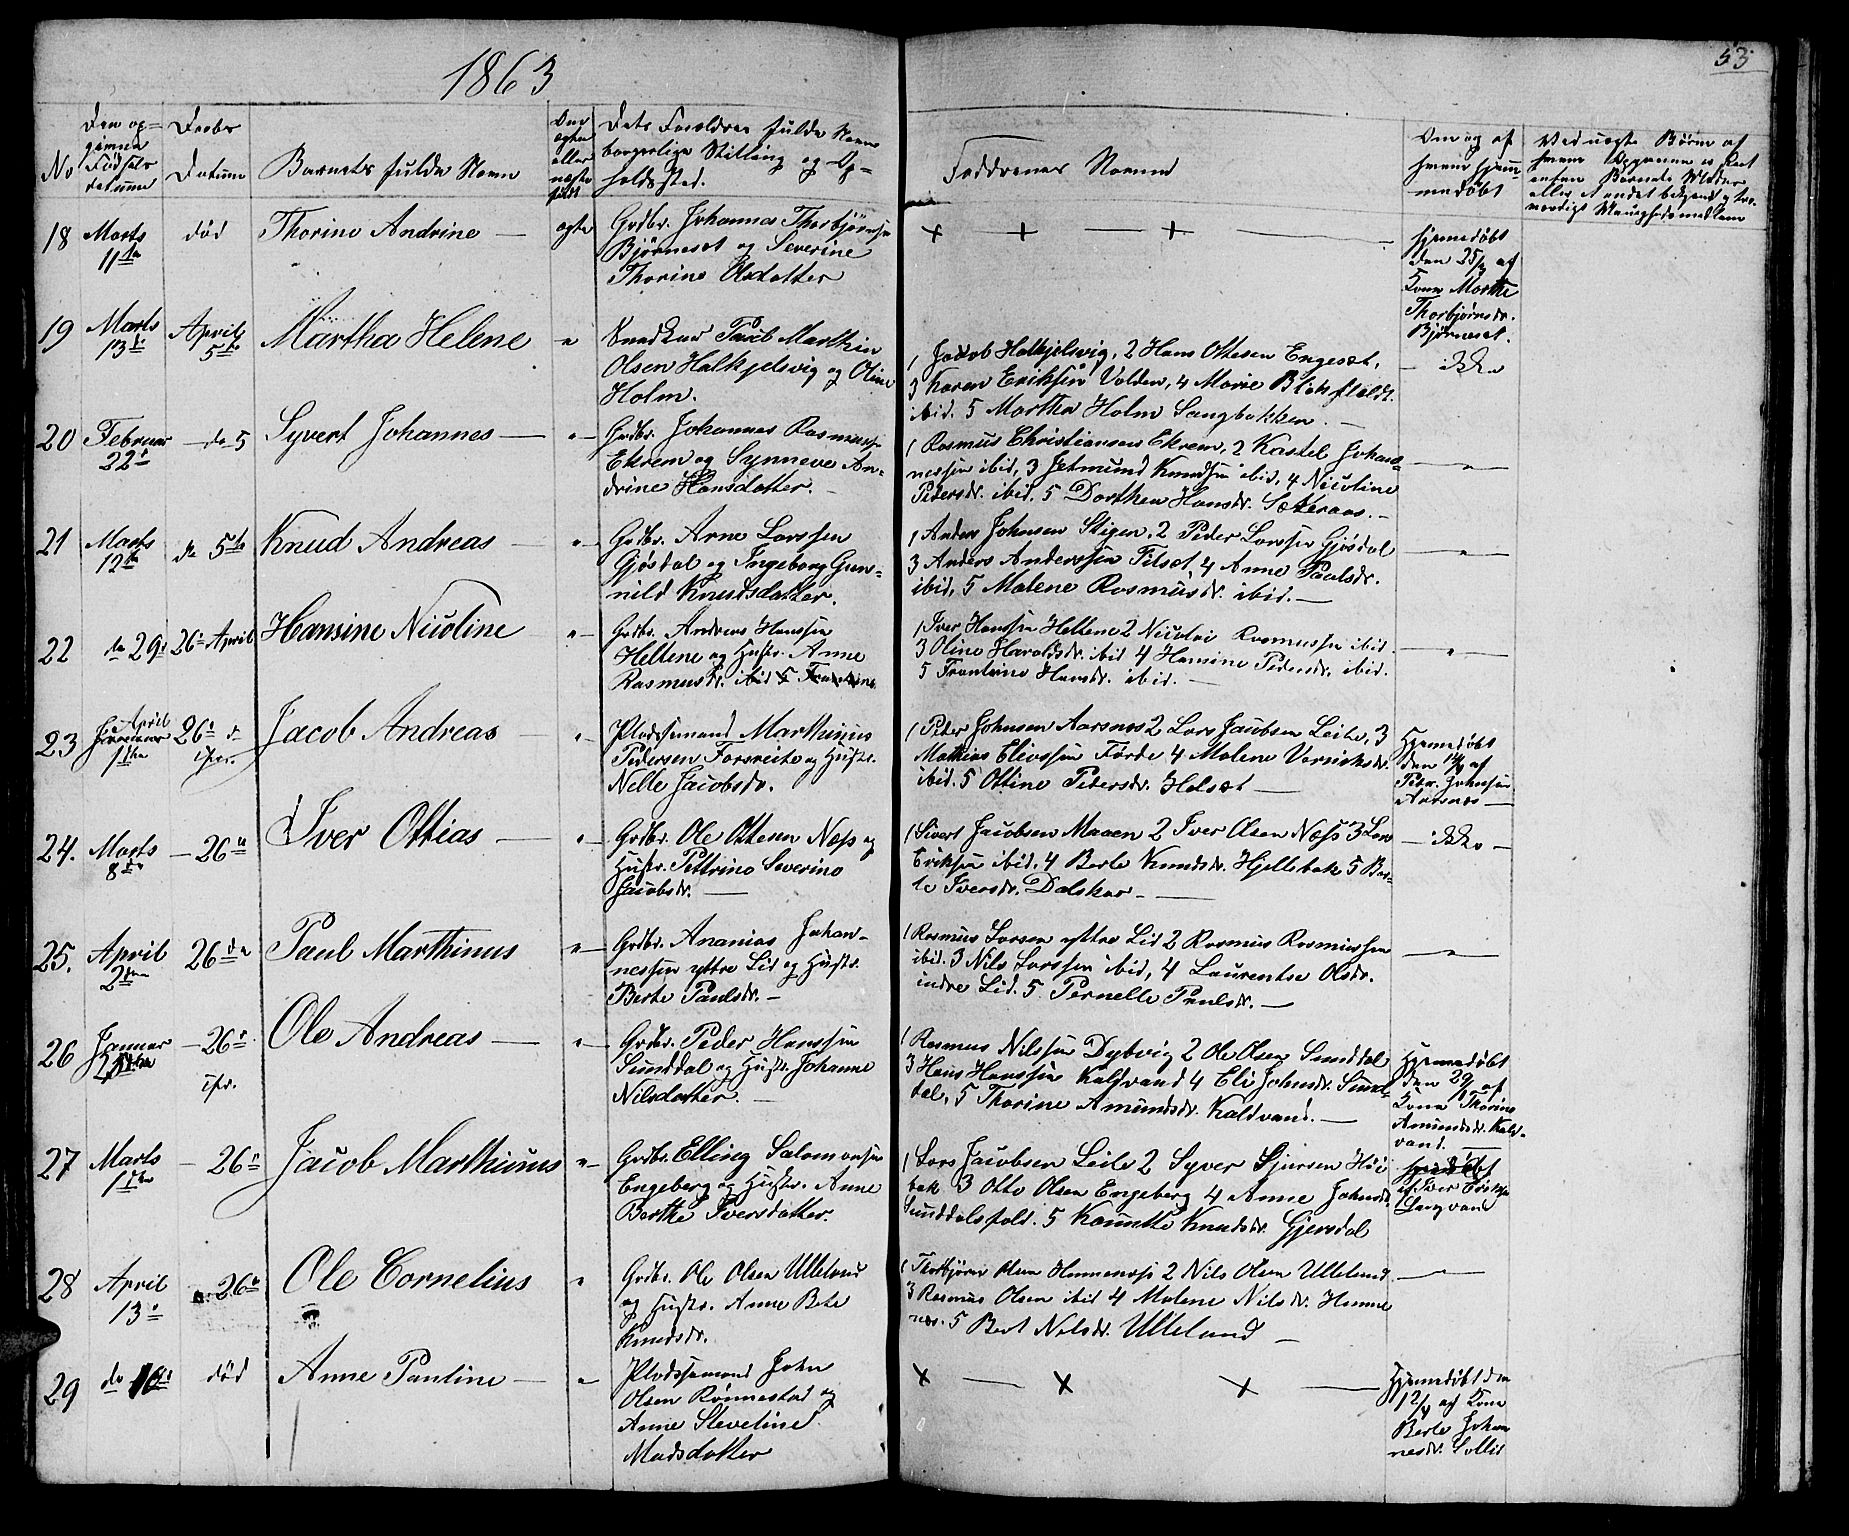 1863
53
No
Den op=
given
Fødsels
datum
Daabs
Datum
Barnets fulde Navn
Om
ægte
eller
uægte
født
Dets Forældres fulde Navne
borgerlige Stilling og Op=
holdssted.
Faddrenes Navne
Om og af
hvem hjem=
medøbt
Ved uægte Børn af
hvem Opgaven er skeet
enten Barnets Moder
eller et andet bekjendt og tro=
værdigt Menighedsmedlem
18 Marts
11te
død
Thorine Andrine —
ægte
Grdbr. Johannes Thorbjørnsen
Bjørneset og Severine
Thorine Olsdatter
+ + + —
Hjemedøbt
den 25/3 af
Kone Marthe
Thorbjørnsdr.
Bjørneset.
19 Marts
13de
April
5te
Martha Helene
"
Paul Marthin
Olsen Halkjelsvig og Oline
Holm.
1 Jakob Halkjelsvig, 2 Hans Ottesen Engesæt,
3 Karen Eriksen Volden, 4 Marie
ibid. 5 Martha Holm Sangbakken. —
— ikke
20 Februar
22de
— do 5
Syvert Johannes —
"
Grdbr. Johannes Rasmussen
Ekrem og Synneve An=
drine Hansdatter. —
1 Rasmus Christiansen Ekrem, 2 Kastel Johan=
nessen ibid, 3 Jetmund Knudsen ibid, 4 Nicoline
Pedersdr. ibid. 5 Dorthea Hansdr. Sæteraas. —
— " —
21 Marts
12te
do 5te
Knud Andreas —
"
Grdbr. Arne Larssen
Gjøsdal og Ingeborg Gun=
nild Knudsdatter.
1 Anders Johnsen Stigen, 2 Peder Larssen Gjøsdal
3 Anders Anderssen Filset, 4 Anne Paulsdr.
ibid, 5 Malene Rasmusdr. ibid. —
— " —
22 do 29de
26de April
Hansine Nicoline
"
Grdbr. Andreas Hanssen
Hellene og Hustr. Anne
Rasmusdr. ibid
1 Iver Hanssen Hellene 2 Nicolai Rasmussen ibid.
3 Oline Haraldsdr. ibid 4 Hansine Pedersdr. ibid.
5 Hansdr. ibid. —
— " —
23 April
1ste
26de do
Jacob Andreas
"
Pladsemand Marthinus
Pedersen Førsreite og Hustr.
Nelle Jacobsdr.
1 Peder Johnsen Aarsnes 2 Lars Jacobsen Leite, 3
Mathias Eliassen Førde 4 Malene
ibid. 5 Ottine Pedersdr. Helset —
Hjemedøbt
den af
Peder Johnsen
Aarsnes —
24. Marts
8de
— 26de
Iver Ottias —
"
Grdbr. Ole Ottesen Næss og
Hustr. Pettrine Severine
Jacobsdr. —
1 Sivert Jacobsen Maaen 2 Iver Olsen Næss 3 Lars
Eriksen ibid. 4 Berte Knudsdr. Hjellebak 5 Ber=
te Iversdr. Dalskar — —
— ikke —
25. April
2den
26de
Paul Marthinus
"
Grdbr. Ananias Johan=
nessen yttre Lid og Hustr.
Berte Paulsdr. —
1 Rasmus Larsen yttre Lid 2 Rasmus Rasmussen
ibid. 3 Nils Larssen ibid, 4 Laurentse Olsdr.
indre Lid. 5. Pernelle Paulsdr. —
— " —
26 Januar
— 26de
Ole Andreas —
"
Grdbr. Peder Hanssen
Sunddal og Hustr. Johanne
Nilsdatter. —
1 Rasmus Nilssen Dybvig 2 Ole Olsen Sunddal
3 Hans Hanssen Kaldvand 4 Eli Johnsdr. Sund=
dal, 5 Thorine Amundsdr. Kaldvand. —
Hjemedøbt
den 29/1 af
Kone Thorine
Amundsdr. Kald=
vand.
27 Marts
1ste
— 26de
Jacob Marthinus
"
Grdbr. Elling Salomonsen
Engeberg og Hustr. Anne
Berthe Iversdatter.
1 Lars Jacobsen Leite 2 Syver Sjursen Høi=
bak 3 Otto Olsen Engeberg 4 Anne Johnsdr.
Sunddalsfald. 5 Knudsdr. Gjersdal
af Iver Eriksen
Langvand
28 April
13de
26de
Ole Cornelius
"
Grdbr. Ole Olsen Ulleland
og Hustr. Anne Berte
Knudsdr.
1 Thorbjørn Olsen Humenæss 2 Nils Olsen Ulleland
3 Rasmus Olsen ibid 4 Malene Nilsdr. Humme
næs. 5 Bert Nilsdr. Ulleland —
— " —
29 do 10de
død
Anne Pauline —
"
Pladssemand John
Olsen Rønnestad og
Anne Steveline
Madsdatter
+ — + + —
Hjemedøbt den
12/4 af Kone
Berte Johan
nesdr. Sollid